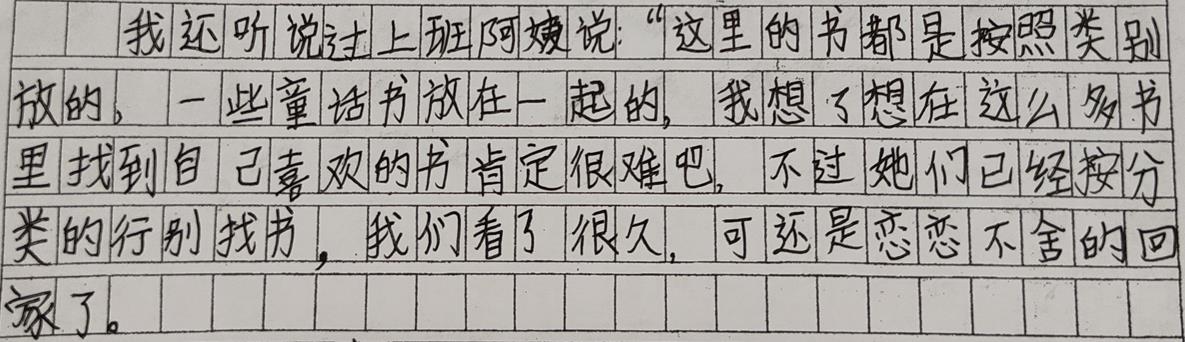 我还听说过上班阿姨说：“这里的书都是按照类别
放的，一些童话书放在一起的，我想了想在这么多书
里找到自己喜欢的书肯定很难吧，不过她们已经按分
类的行别找书，我们看了很久，可还是恋恋不舍的回
家了。